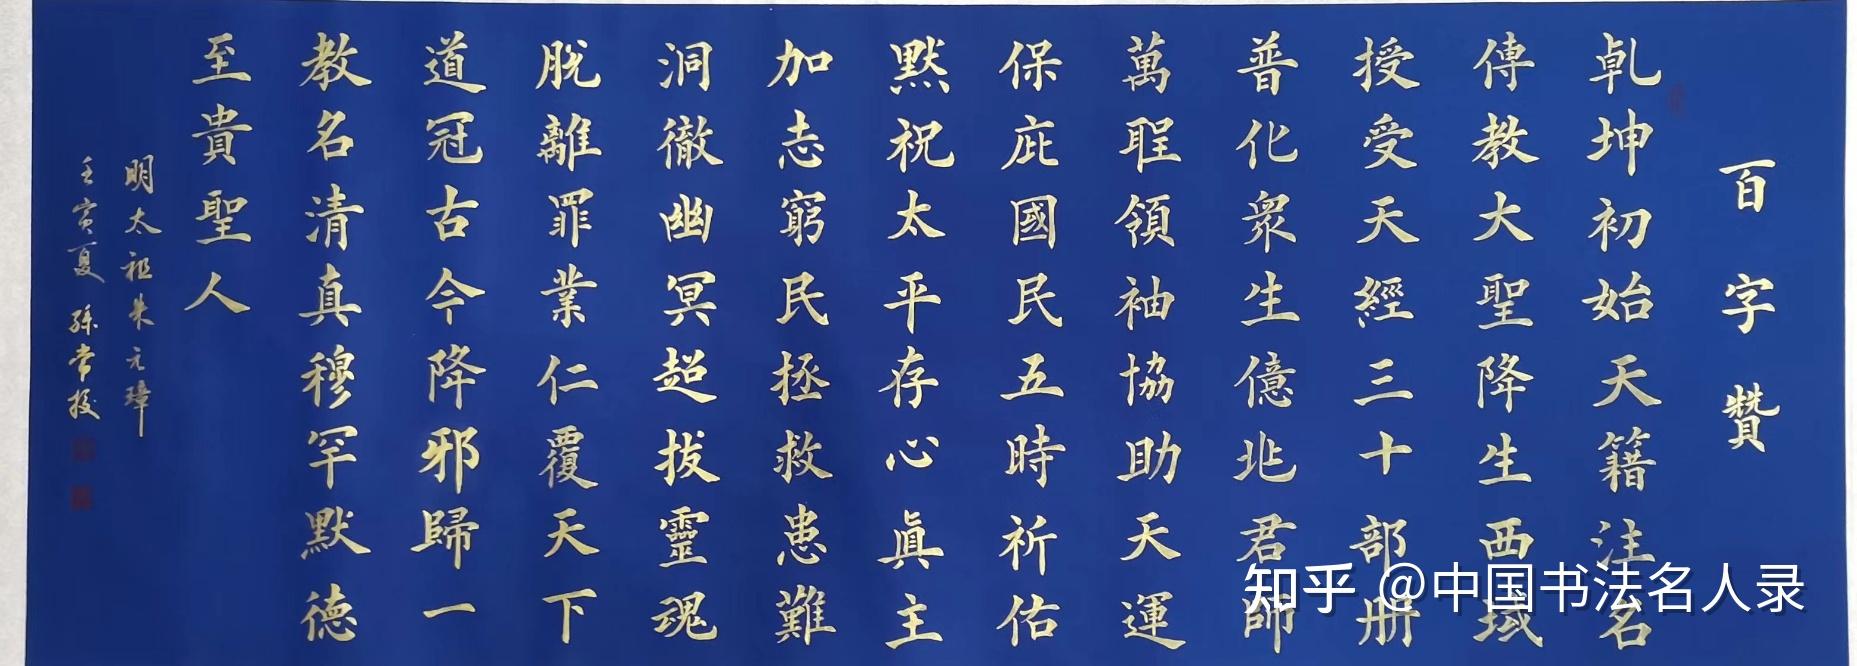 百字贊
乹坤初始天籍注名
傳教大聖降生西域
授受天經三十部册
普化衆生億兆君師
萬聖領袖協助天運
保庇國民五時祈佑
默祝太平存心眞主
加志窮民拯救患難
洞徹幽冥超拔靈魂
脫離罪業仁覆天下
道冠古今降邪歸一
教名清真穆罕默德
至貴聖人
明太祖朱元璋
壬寅夏 孫常蛟
知乎 @中国书法名人录